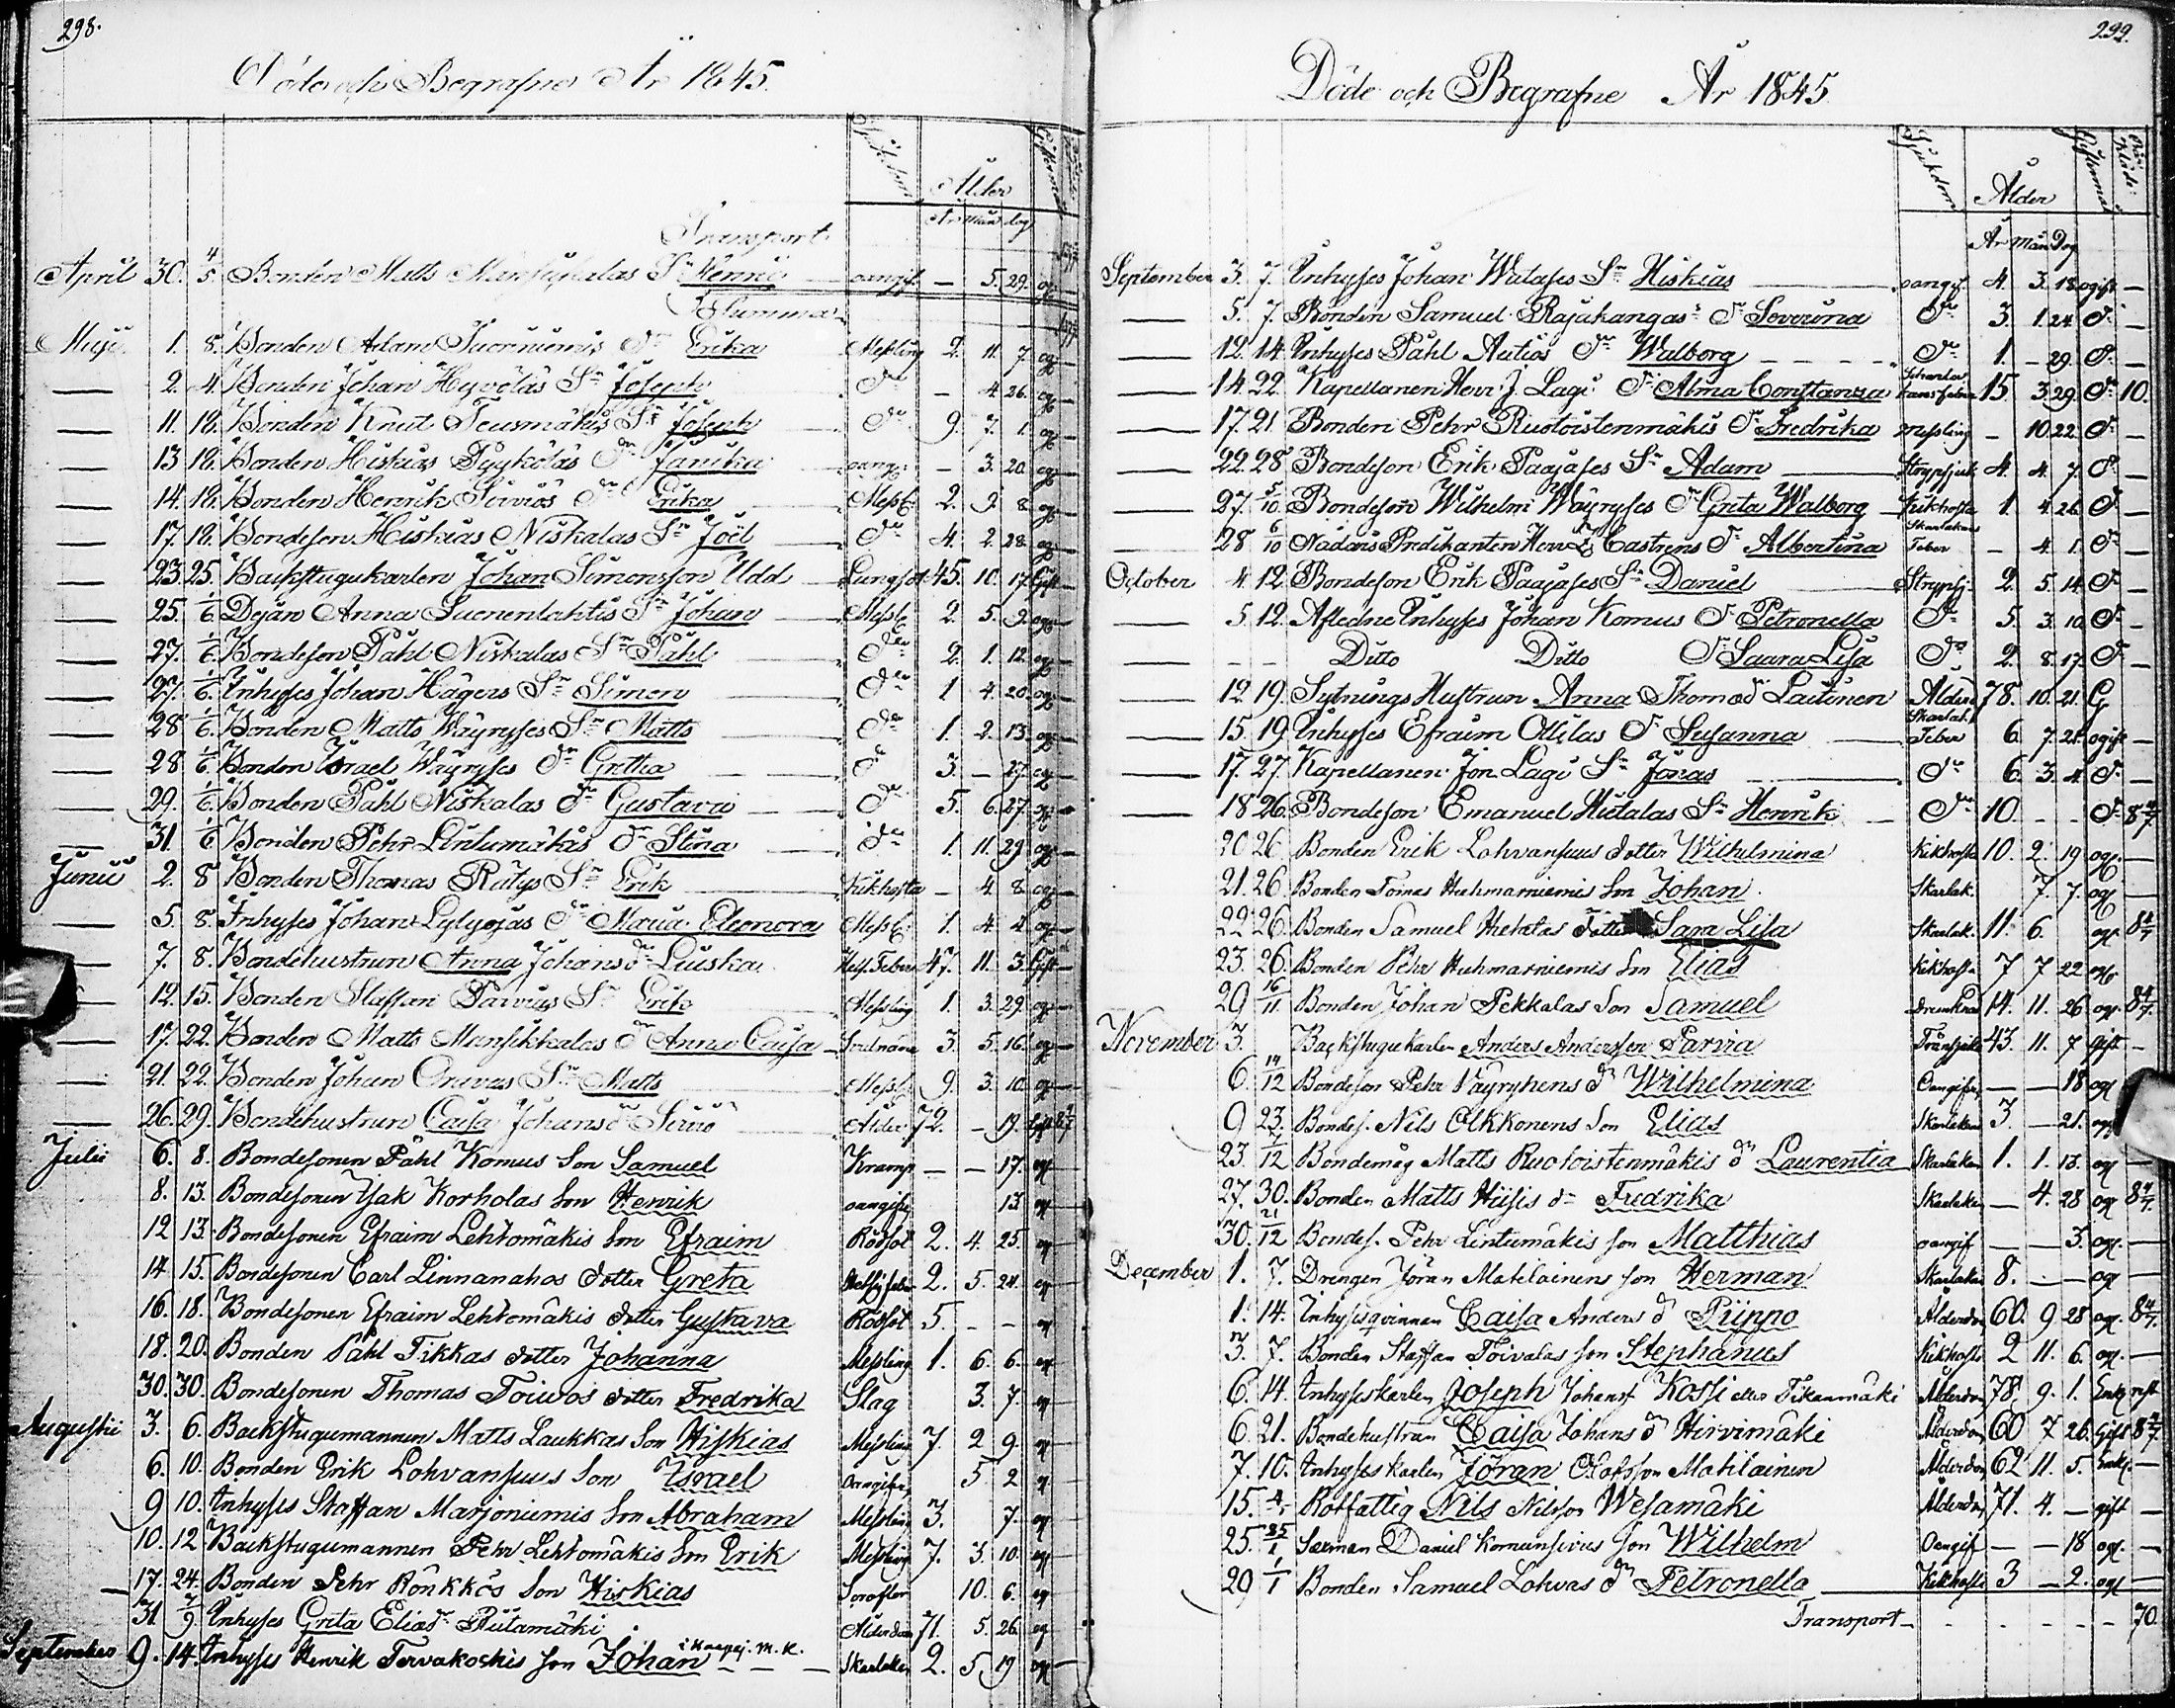 298.
Döde och Begrafne År 1845.
Sjukdom Ålder
År mån dag
Transport
April 30. 4/5. Bonden Matts Mansikkalas Sn oangif. — 5. 29. og
Summa
Maji 1. 8. Bonden Adam Suorniemis dr Erika Messling 2. 11. 7. og
— 2. 4. Bonden Johan Hyvölas Sn Joseph do — 4 26. og
— 11. 18. Bonden Knut Teusmäkis Sn Joseph do 9. 7. 1. og
— 13 18. Bonden Hiskias Pyykölas dr oang. — 3. 20 og
— 14. 18. Bonden Henrik Sirviös dr Erika Messl. 2. 2. 8 og
— 17. 18. Bondeson Hiskias Niskalas Sn Joël do 4. 2. 28 og
— 23. 25. Backstugukarlen Johan Simonsson Udd Lungsot 45. 10. 17. Gift
— 25. 1/6 Dejan Anna Suonenlahtis Sn Johan Messl. 2. 5. 2. og
— 27. 1/6. Bondeson Påhl Niskalas Sn Påhl do 2. 1. 12. og
— 27. 1/6. Inhyses Johan Hägers Sn Simon do 1 4. 20 og
— 28 1/6. Bonden Matts Wäyryses Sn Matts do 1. 2. 13. og
— 28 1/6. Bonden Israel Wäyryses dr Gretha do 3. — 27. og
— 29. 1/6. Bonden Påhl Niskalas dr Gustava do 5. 6. 27. og
— 31. 1/6 Bonden Pehr Lintumäkis dr Stina do 1. 11. 29 og
Junii 2. 8 Bonden Thomas Rätys Sn Erik Kikhosta — 4. 8. og
— 5. 8. Inhyses Johan Lylyojas dr Maria Eleonora Messl. 1. 4. 4 og
— 7. 8. Bondehustrun Anna Johansdr Luiska Feber 47. 11. 3. Gift
— 12. 15. Bonden Staffan Parvias Sn Erik Messling 1. 3. 29. og
— 17. 22. Bonden Matts Mansikkalas dr Anna Caisa 3. 5. 16. og
— 21. 22. Bonden Johan Oravas Sn Matts Messl. 9. 3. 10. og
— 26. 29. Bondehustrun Caisa Johansdr Sirviö Ålder 72. — 19.
Julii 6. 8. Bondesonen Påhl Komus Son Samuel Kramp — — 17. og
8. 13. Bondesonen Isak Korholas Son Henrik oangifv. 13 og
12 13. Bondesonen Efraim Lehtomäkis Son Efraim Rödsot 2. 4. 25. og
14 15. Bondesonen Carl Linnanahos dotter Greta 2. 5. 24. og
16. 18. Bondesonen Efraim Lehtomäkis dotter Gustava Rödsot 5. — — og
18. 20. Bonden Påhl Tikkas dotter Johanna Messling 1. 6. 6. og
30. 30. Bondesonen Thomas Toiwos dotter Fredrika Slag 3. 7. og
Augusti 3. 6. Backstugumannen Matts Laukkas Son Hiskias Messling 7. 2 9. og
6. 10. Bonden Erik Lohvansuus Son Israel Oangifv. 5. 2 og
9 10. Inhyses Staffan Marjoniemis Son Abraham Messling 3. 7. og
10. 12 Backstugumannen Pehr Lehtomäkis Son Erik Messling 7. 3. 10. og
17. 24. Bonden Pehr Rönkkös Son Hiskias 10. 6. og
31 7/9 Inhyses Greta Eliasdr Riitamäki Ålderdom 71. 5. 26. og
September 9. 14. Inhyses Henrik Tervakoskis Son Johan Skarlakan 2. 5 19 og
299.
Döde och Begrafne År 1845
Sjukdom Ålder
År Mån Dag
September 3. 7. Inhyses Johan Wutases Sn Hiskias oangif. 4. 3. 18 ogift —
— 5. 7. Bonden Samuel Rajakangas's dr Severina do 3. 1. 24. do —
— 12. 14. Inhyses Påhl Autios dr Walborg do 1. — 29. do —
— 14. 22. Kapellanen Herr J. Lagi dr Alma Constanza 15. 3. 29. do 10.
— 17. 21. Bonden Pehr Ruotoistenmäkis dr Fredrika messling — 10. 22. do —
— 22. 28 Bondeson Erik Paajases Sn Adam Strypsjuk 4. 4. 7. do —
— 27. 5/10. Bondeson Wilhelm Wäyryses dr Greta Walborg Kikhosta 1. 4. 26. do —
— 28 6/10 Nådårs Predikanten Herr Castrens dr Albertina Skarlakans Feber — 4. 1. do —
October 4. 12. Bondeson Erik Paajases Sn Daniel Strypsj. 2. 5. 14. do —
— 5 12. Afledne Inhyses Johan Komus dr Petronella do 5. 3. 10. do —
— — — Ditto Ditto dr Saara Lisa do 2. 8. 17. do —
— 12. 19. Sytnings Hustrun Anna Thomædr Laitinen Ålderd. 78. 10. 21. G
— 15. 19. Inhyses Efraim Ollilas dr Susanna Skarlak. Feber 6. 7. 21. ogift —
— 17. 27. Kapellanen Jon Lagi Sn Jonas do 6. 3. 4. do —
— 18 26. Bondeson Emanuel Hietalas Sn Henrik do 10. — — do 8 4/7
20 26 Bonden Erik Lohvansuus dotter Wilhelmina Kikhosta 10. 2. 19 og. —
21. 26. Bonden Tomas Huhmarniemis Son Johan Skarlak. 7. 7. og —
22 26. Bonden Samuel Hietalas dotter Sara Lisa Skarlak. 11. 6. og. 8 4/7
23. 26. Bonden Pehr Huhmarniemis Son Elias Kikhosta 7 7 22 og.
29 16/11 Bonden Johan Pekkalas Son Samuel Drunknad 14. 11. 26 og. 8 4/7
November 3. Backstugukarlen Anders Andersson Parvia 43. 11. 7 gift —
6. 14/12 Bondeson Pehr Väyrynens dr Wilhelmina Oangifv. — — 18 og
9 23. Bondes. Nils Olkkonens Son Elias Skarlakan 3 — 21. og
23. 7/12 Bondemåg Matts Ruotoistenmäkis dr Laurentia Skarlakan 1. 1. 13. og —
27. 30. Bonden Matts Hiisis dr Fredrika Skarlakan — 4. 28 og 8 4/7
30. 21/12 Bondes. Pehr Lintumäkis son Matthias oangif. — — 3. og. —
December 1. 7. Drengen Jöran Matilainens son Herman Skarlakan 8. — — og —
1. 14. Inhysesqvinnan Caisa Anders dr Piippo Ålderdom 60. 9 28 og. 8 4/7
3. 7. Bonden Staffan Toivalas son Stephanus Kikhosta 2 11. 6. og. —
6. 14. Inhyseskarlen Joseph Johanss. Kossi eller Tikanmäki Ålderdom 78. 9. 1. Enkl.
6. 21. Bondehustrun Caisa Johans dr Hirvimäki Ålderdom 60 7 26. Gift 8 4/7
7. 10. Inhyseskarlen Jöran Olofsson Matilainen Ålderdom 62 11. 5. Enkl. —
15. Rotfattig Nils Nilsson Wesamäki Ålderdom 71. 4. — gift —
25. Daniel son Wilhelm Oangif — — 18 og. —
29 1/1 Bonden Samuel Lohvas dr Petronella Kikhosta 3 — 2. og —
Transport 70.